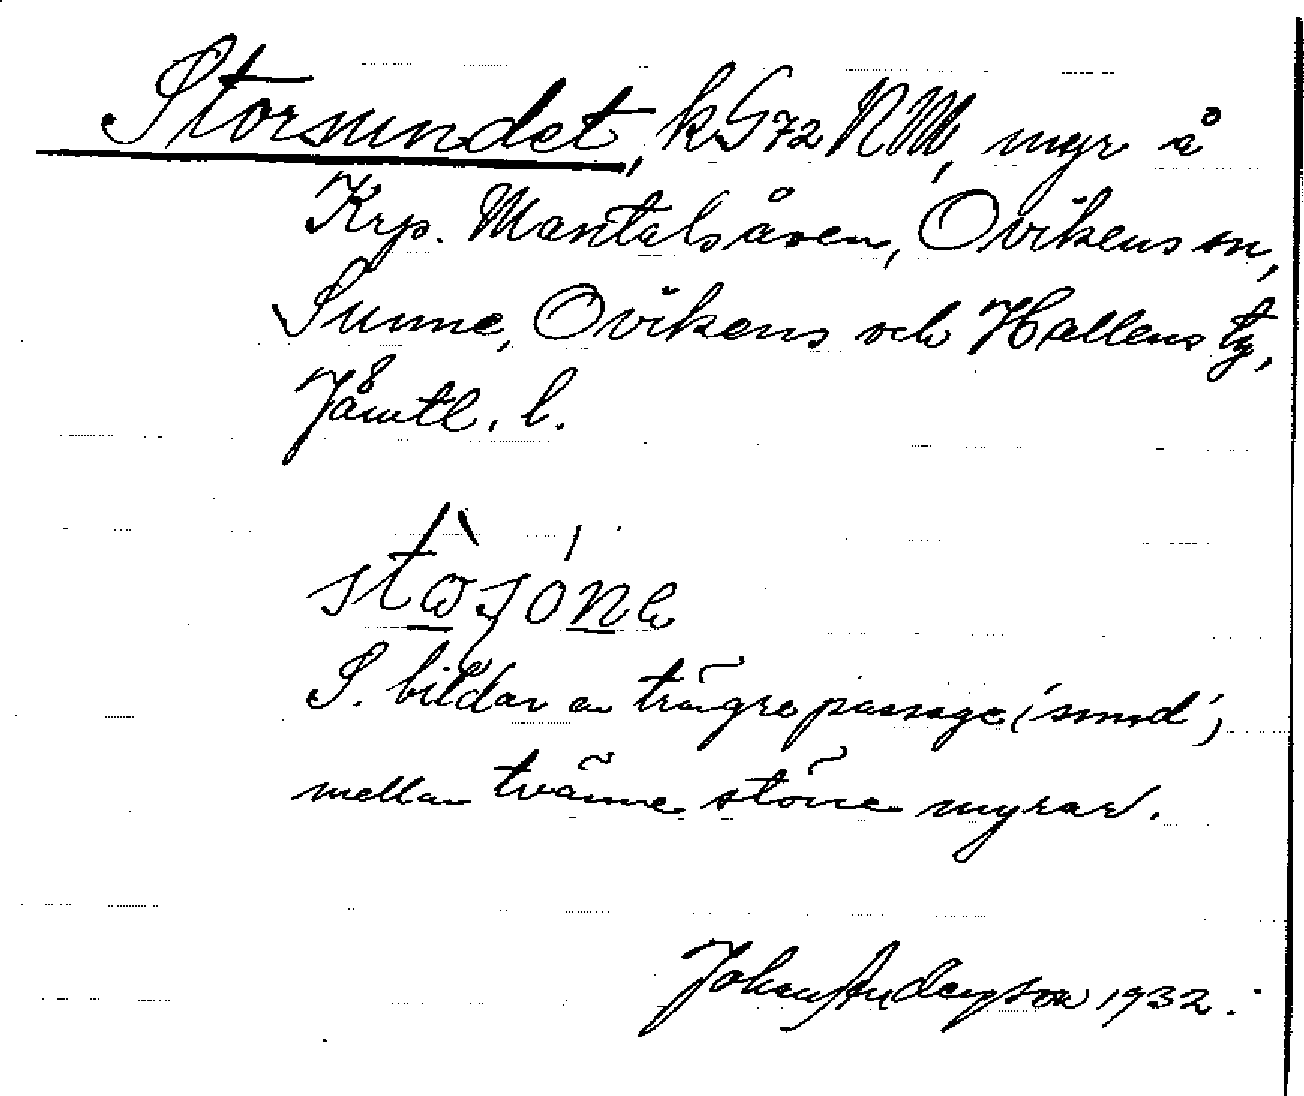 Storsundet, kG72NM, myr å
Krp. Mantalsåsen, Ovikens sn,
Sunne, Ovikens och Hallens tg,
Jämtl. l.
S. bildar en trängre passage ('sund')
mellan tvänne större myrar.
Johan Anderson 1932.